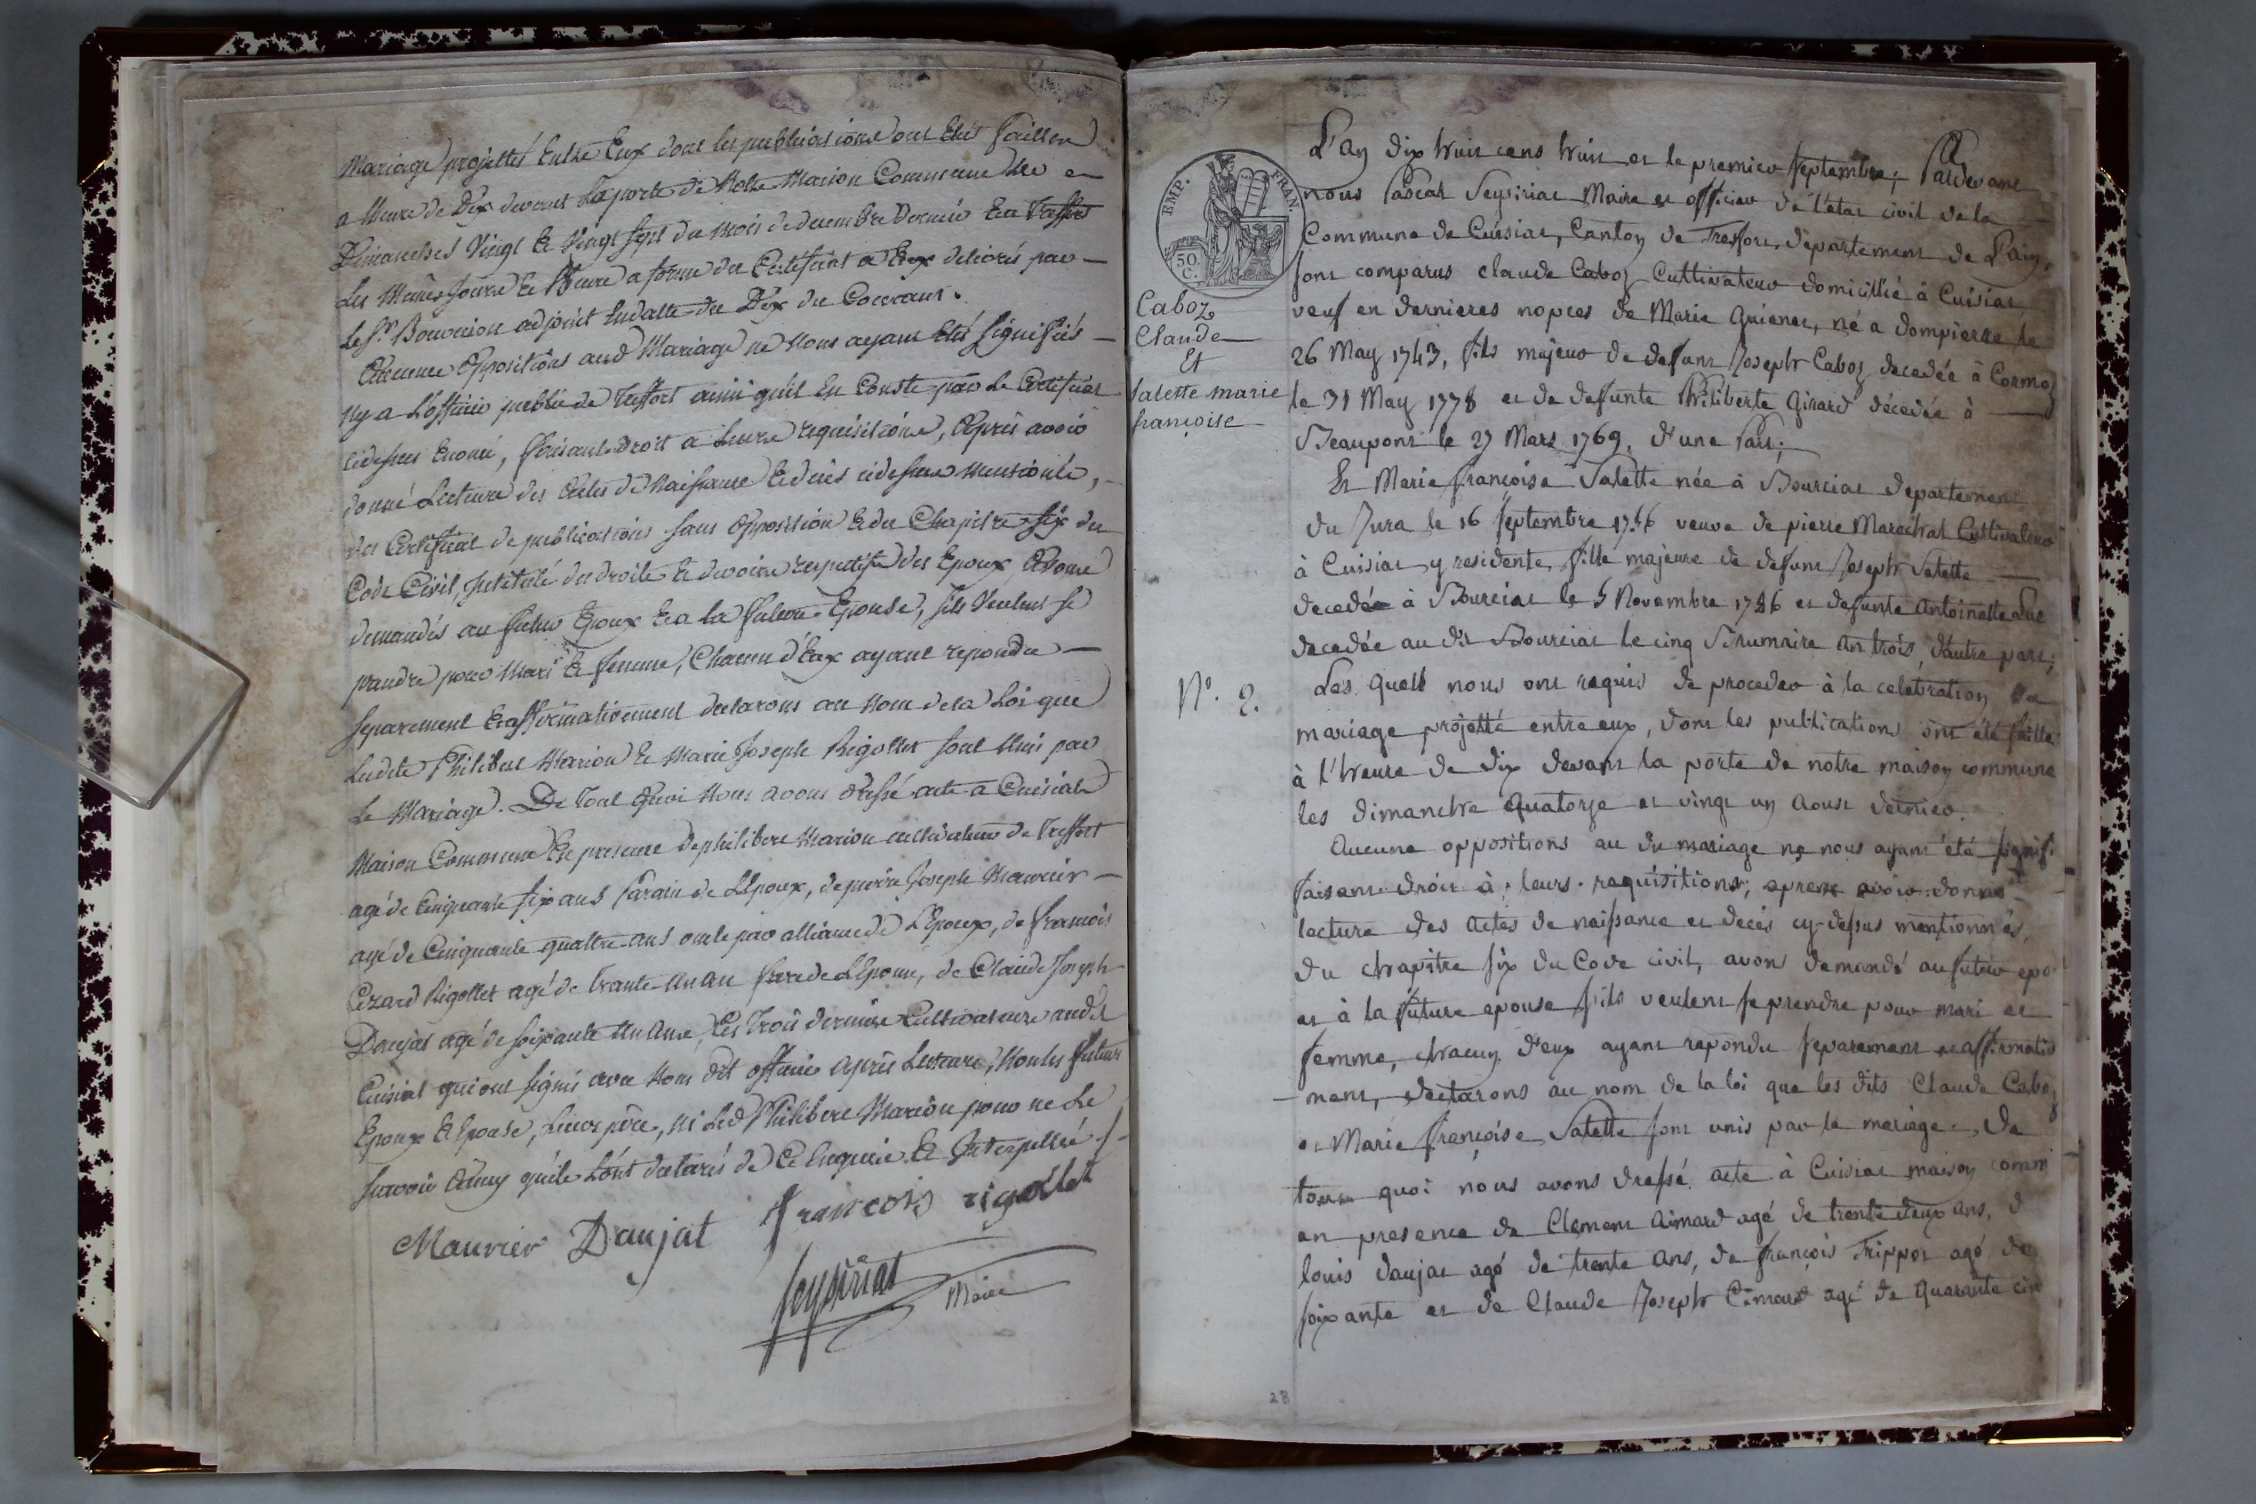 Mariage projetté Entre Eux dont les publications ont Eté faittes
a lheure de Dix devant la porte de Notre Maison Commune les
Dimanches Vingt Et Vingt sept du mois de decembre Dernier Et a Treffort
Les Mêmes Jours Et Heure a forme du Certificat a Eux delivrés par
Le Sr. Bouvier adjoint En datte du Dix du Courant.
Aucunes Oppositions aud Mariage ne Nous ayant Eté Signifiés
Ny a L'officier public de Treffort ainsi qu'il En Conste par Le Certificat
cidessus Enoncé, faisant Droit a Leurs requisitions, Après avoir
donné Lecture des Actes de Naissance Et deces cidessus mentionés,
des Certificat de publications sans Opposition Et du Chapitre Six du
Code Civil, Intitulé des droits Et devoirs respectifs des Epoux, Avons
demandés au futur Epoux Et a la future Epouse, s'ils Veulent se
prendre pour Mari Et femme, Chacun d'Eux ayant repondu
separement Et affirmativement declarons au Nom de la Loi que
Lesdits Philibert Marion Et Marie Joseph Rigollet sont Unis par
Le Mariage. De Tout Quoi Nous avons dressé acte a Cuisiat
Maison Commune En presence de philibert Marion cultivateur de Treffort
agé de Cinquante six ans Parain de L'Epoux, de pierre Joseph Maurier
agé de Cinquante quattre ans oncle par alliance de L'Epoux, de françois
Cezard Rigollet agé de Trante un an frere de L'Epouse, de Claude Joseph
Daujat agé de soixante Un Ans, Les Trois derniers Cultivateurs audit
Cuisiat qui ont signés avec Nous dit officier après Lecture, Non les futurs
Epoux Et Epouse, Leurs père, Ni Led Philibert Marion pour ne Le
savoir Ainsy qu'ils L'ont declarés de Ce Enquis Et Interpellés
Maurier Daujat françois rigollet
Seysiriat Maire
Caboz
Claude
Et
Salette marie
françoise
N°. 2.
L'an dix huit cens huit et le premier septembre; Pardevant
nous Pascal Seysiriat Maire et officier de l'etat civil de la
Commune de Cuisiat, Canton de Treffort, departement de l'ain,
sont comparus claude Caboz Cultivateur domicillié à Cuisiat
veuf en dernieres nopces de Marie Guienet, né a dompierre le
26 May 1743, fils majeur de defunt Joseph Caboz decedée à Cormoz
le 31 May 1778 et de defunte Philiberte Girard décedée à
Beaupont le 27 Mars 1769. d'une Part;
Et Marie françoise Salette née à Bourciat departement
du Jura le 16 septembre 1756 veuve de pierre Marechal Cultivateur
à Cuisiat y residente, fille majeure de defunt Joseph Salette
decedée à Bourciat le 5 Novembre 1786 et defunte antoinette
decedée au dit Bourciat le cinq Brumaire an trois, d'autre part;
Les quels nous ont requis de proceder à la celebration de
mariage projetté entre eux, dont les publications ont été faitte
à l'heure de dix devant la porte de notre maison commune
les dimanche quatorze et vingt un aoust dernier.
Aucune oppositions au du mariage ne nous ayant été signif
faisant droit à leurs requisitions, apres avoir donné
lecture des actes de naissance et decès cy-dessus mentionnés,
du chapitre six du Code civil, avons demandé au futur epo
et à la future epouse s'ils veulent se prendre pour mari et
femme, chacun d'eux ayant repondu separement et affirmativ
-ment, declarons au nom de la loi que les dits Claude Caboz
et Marie françoise Salette sont unis par le mariage. De
tout quoi nous avons dressé acte à Cuisiat maison comm
en presence de Clement Aimard agé de trente deux ans, d
louis daujat agé de trente ans, de françois Frippet agé de
soixante et de Claude Joseph agé de quarante cin
28
EMP. FRAN.
50.
C.